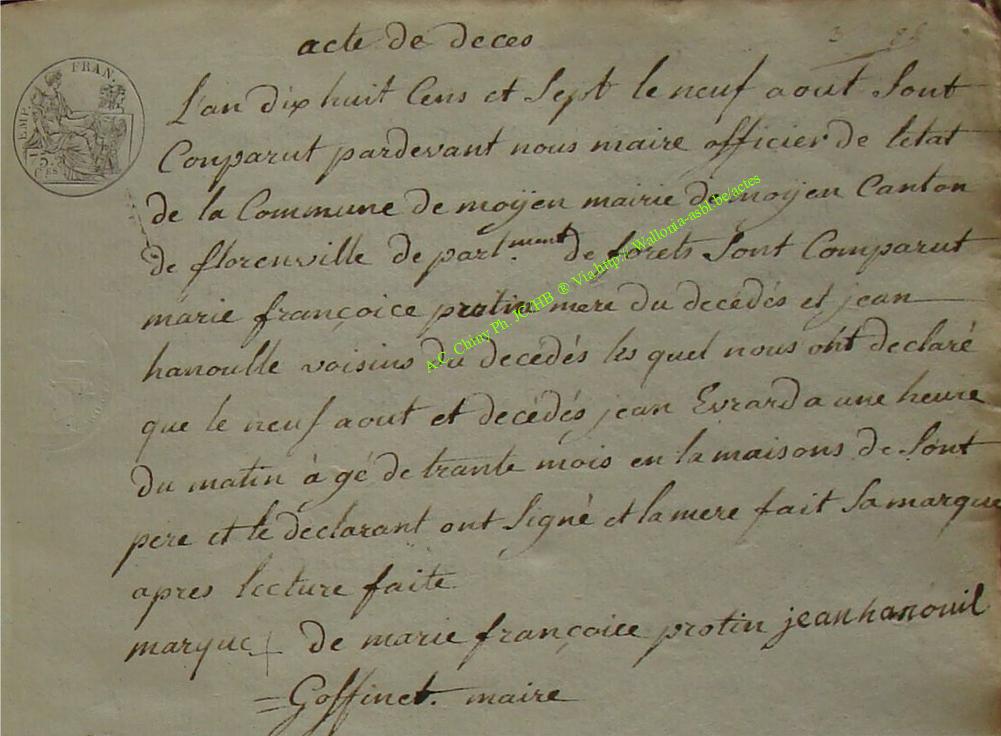 acte de deces
L'an dix huit Cens et Sept le neuf aout Sont
Conparut pardevant nous maire officier de l'etat
de la Commune de moÿen mairie de moÿen Canton
de florenville depart.ment de forets Sont Comparut
marie françoice protin mere du decédés et jean
hanoulle voisins du decédés les quel nous ont declaré
que le neuf aout et decédés jean Evrard a une heure
du matin à gé de trante mois en la maisons de Sont
pere et le declarant ont Signé et la mere fait Sa marque
apres lecture faite
marque + de marie françoice protin jean hanouil
= Goffinet. maire
EMP. FRAN.
A.C. Chiny Ph. JC HB ® Via http://Wallonia-asbl.be/actes